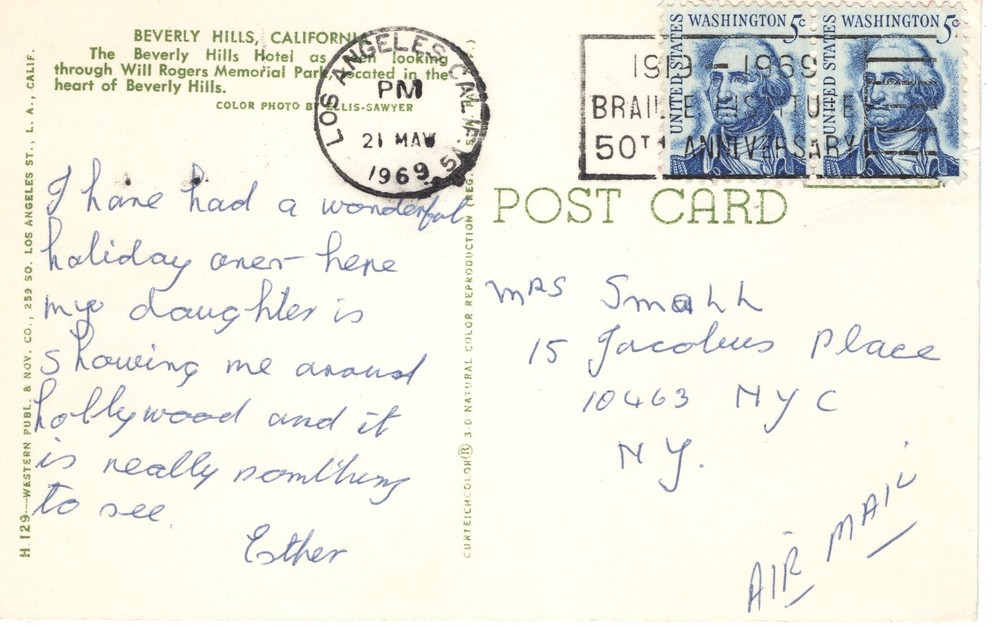 BEVERLY HILLS, CALIFORNIA
The Beverly Hills Hotel as looking
through Will Rogers Memorial Park located in the
heart of Beverly Hills.
COLOR PHOTO BY ELLIS-SAWYER
H.129—WESTERN PUBL. & NOV. CO., 259 SO. LOS ANGELES ST., L. A., CALIF.
I have had a wonderful
holiday over here
my daughter is
showing me around
hollywood and it
is really somthing
to see
Esther
CURTEICHCOLOR® 3-D NATURAL COLOR REPRODUCTION (REG. U.S.
LOS ANGELES, CALIF.
PM
21 MAY
1969
1919 – 1969
BRAILLE INSTITUTE
50TH ANNIVERSARY
UNITED STATES WASHINGTON 5c
UNITED STATES WASHINGTON 5c
POST CARD
MRS Small
15 Jacobus Place
10463 NYC
NY.
AIR MAIL